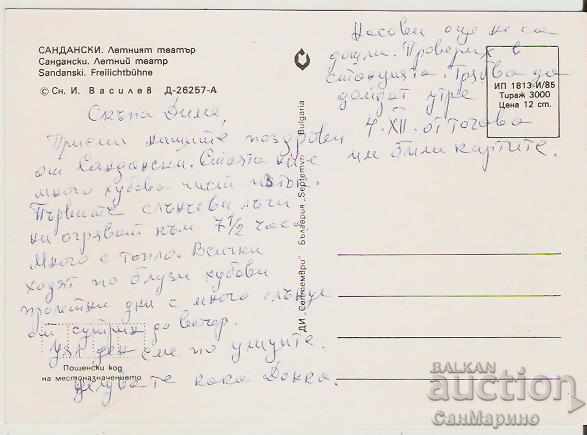 САНДАНСКИ. Летният театър
Сандански. Летний театр
Sandanski. Freilichtbühne
© Сн. И. Василев Д-26257-А
Скъпа Дима,
Приеми нашите поздрави
от Сандански. Стаята ни е
много хубава чист
Първите слънчеви лъчи
ни огряват към 7 1/2 часа
Много е топло. Всички
ходят по блузи хубави
пролетни дни с много слънце
от сутрин до вечер.
ден сме по улиците.
Целувате кака Донка.
Пощенски код
на местоназначението
Насовеи още не са
дошли. Проверих в
станцията. Трябва да
дойдат утре
4.XII. от тогава
им били картите.
ИП 1813-И/85
Тираж 3000
Цена 12 cm.
ДИ „Септември" България „Septemvri" Bulgaria
BALKAN
auction
СанМарино